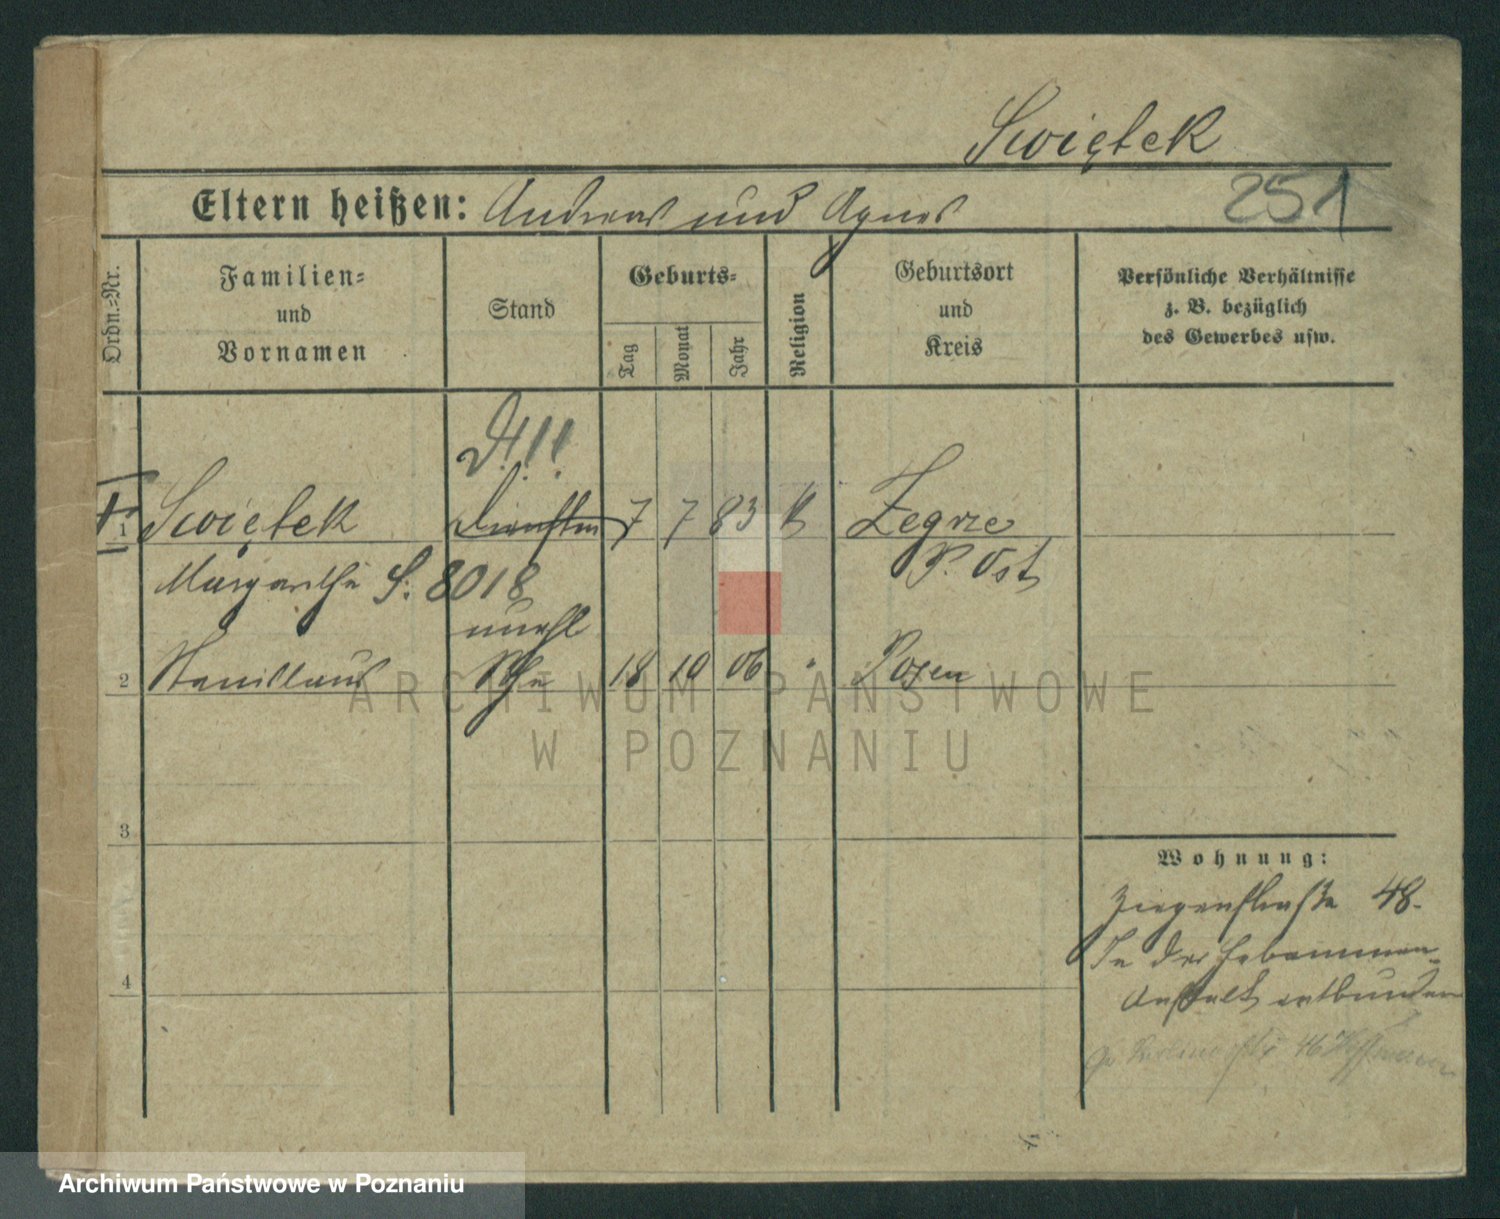 Swiętek
Eltern heißen: Andreas und Agnes
251
Ordn.=Nr.
Familien= und Vornamen
Stand
Geburts=
Tag
Monat
Jahr
Religion
Geburtsort und Kreis
Persönliche Verhältnisse
z. B. bezüglich
des Gewerbes usw.
1 Swiętek 7 7 83 k Zegrze
P. Ost
Margarethe S: 8018
unehl
2 Stanislaus Sohn 18 10 06 " Posen
3
4
Wohnung:
Ziegenstraße 48.
In der Hebammen-
Anstalt entbunden
ARCHIWUM PAŃSTWOWE
W POZNANIU
Archiwum Państwowe w Poznaniu